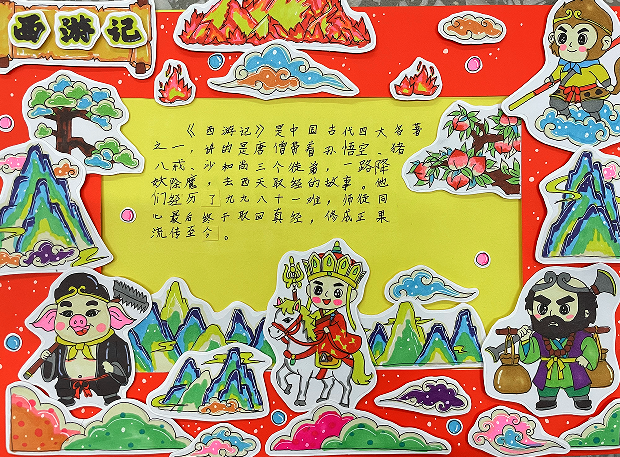 西游记
《西游记》是中国古代四大名著
之一，讲的是唐僧带着孙悟空、猪
八戒、沙和尚三个徒弟，一路降
妖除魔，去西天取经的故事。他
们经历了九九八十一难，师徒同
心最后终于取回真经，修成正果
流传至今。